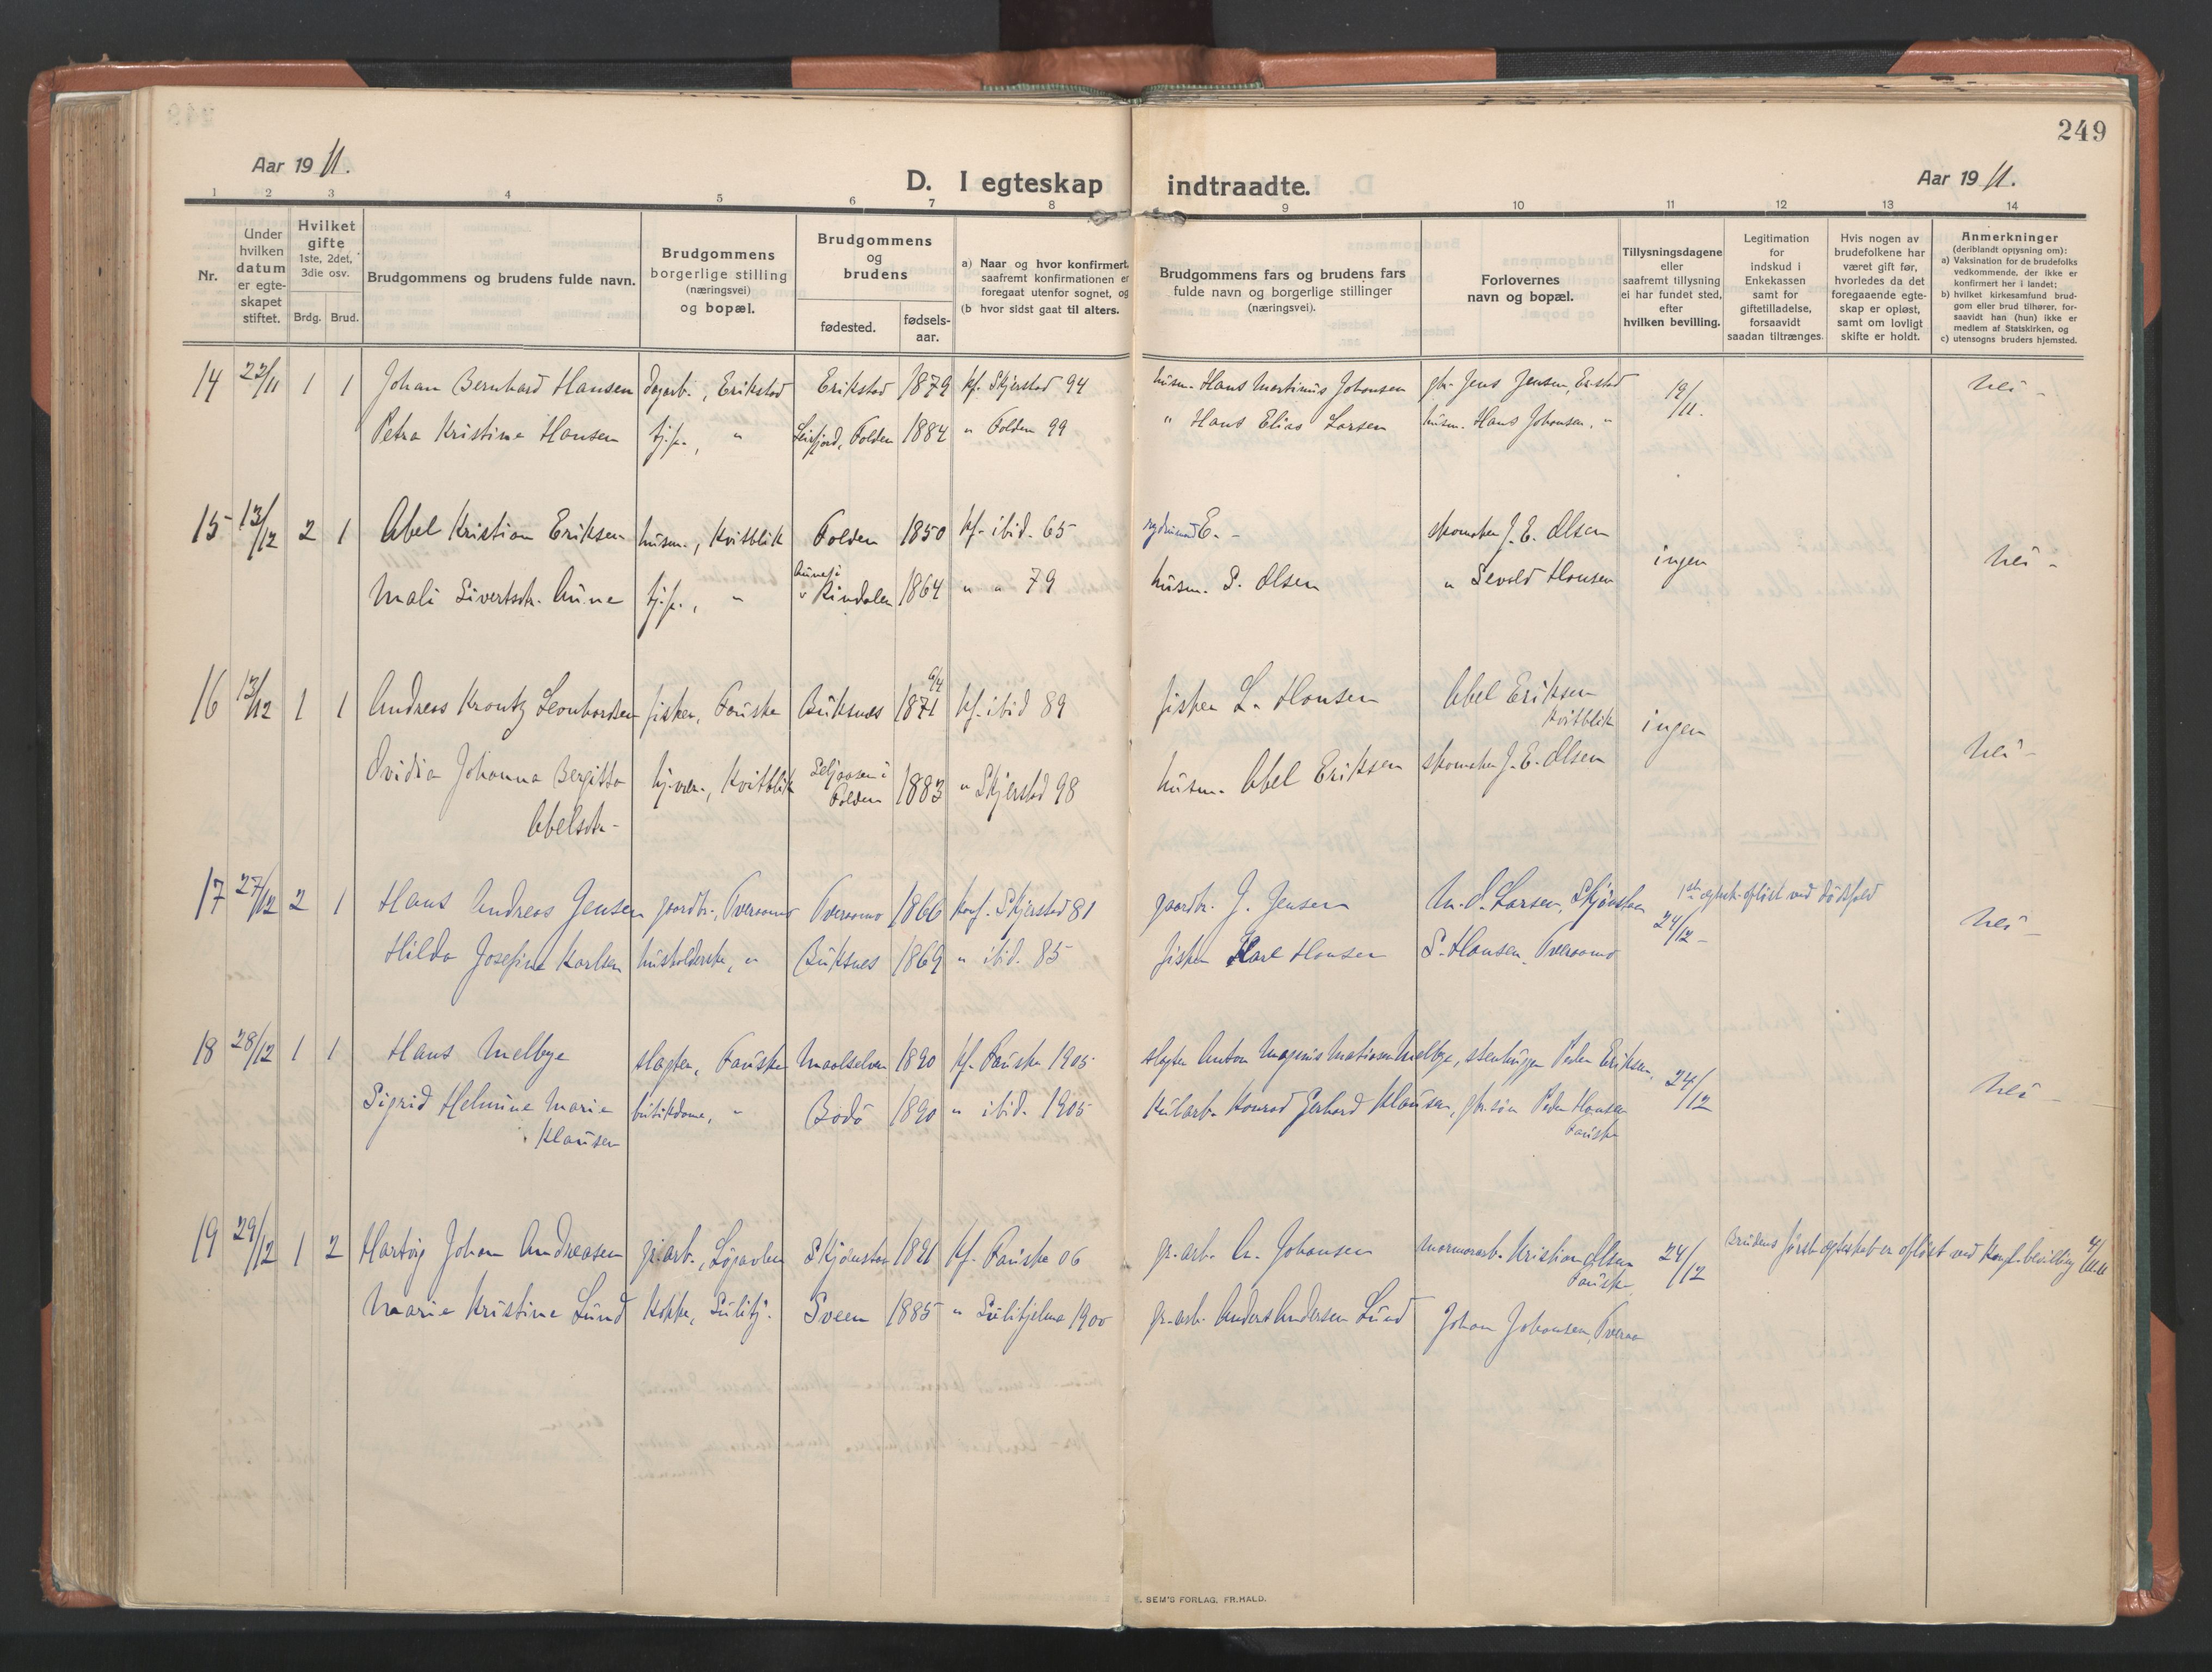 249
Aar 1911.
D. I egteskap indtraadte.
Aar 1911.
1 2 3 4 5 6 7 8 9 10 11 12 13 14
Nr.
Under hvilken datum er egte-skapet stiftet.
Hvilket gifte 1ste, 2det, 3die osv.
Brdg. Brud.
Brudgommens og brudens fulde navn.
Brudgommens borgerlige stilling (næringsvei) og bopæl.
Brudgommens og brudens
fødested.
fødsels-aar.
a) Naar og hvor konfirmert, saafremt konfirmationen er foregaat utenfor sognet, og
(b hvor sidst gaat til alters.
Brudgommens fars og brudens fars fulde navn og borgerlige stillinger (næringsvei).
Forlovernes navn og bopæl.
Tillysningsdagene eller saafremt tillysning ei har fundet sted, efter hvilken bevilling.
Legitimation for indskud i Enkekassen samt for giftetilladelse, forsaavidt saadan tiltrænges.
Hvis nogen av brudefolkene har været gift før, hvorledes da det foregaaende egte-skap er opløst, samt om lovligt skifte er holdt.
Anmerkninger (deriblandt opysning om):
a) Vaksination for de brudefolks vedkommende, der ikke er konfirmert her i landet;
b) hvilket kirkesamfund brud-gom eller brud tilhører, for-saavidt han (hun) ikke er medlem af Statskirken, og
c) utensogns bruders hjemsted.
14 22/11 1 1 Johan Bernhard Hansen dagarb., Erikstad Erikstad 1879 kf. Skjerstad 94 husm. Hans Martinus Johansen gbr. Jens Jensen, Erstad 19/11. nei -
Petra Kristine Hansen tj.p., " Leirfjord, Folden 1884 " Folden 99 " Hans Elias Larsen husm. Hans Johansen, "
15 13/12 2 1 Abel Kristian Eriksen husm., Kvitblik Folden 1850 kf. ibid. 65 E. - skomaker J. E. Olsen ingen nei -
Mali Sivertsdtr. Aune tj.p., " Aunesji v Rindalen 1864 " " 79 husm. S. Olsen " Sevald Hansen
16 13/12 1 1 Andreas Krantz Leonhardsen fisker, Fauske Buksnes 6/4 1871 kf. ibid 89 fisker L. Hansen Abel Eriksen Kvitblik ingen nei -
Ovidia Johanna Bergitta Abelsdtr. hj.vær., Kvitblik Seljaasen i Folden 1883 " Skjerstad 98 husm. Abel Eriksen skomaker J. E. Olsen
17 27/12 2 1 Hans Andreas Jensen gaardbr., Tveraamo Tveraamo 1866 konf. Skjerstad 81 gaardbr. J. Jensen M. O. Larsen, Skjønstaa 24/12 - 1ste egtesk. opløst ved dødsfald nei -
Hilda Josefine Karlsen husholderske, " Buksnes 1869 " ibid. 85 fisker Karl Hansen S. Hansen, Tveraamo
18 28/12 1 1 Hans Melbye slagter, Fauske Maalselven 1890 kf. Fauske 1905 slagter Anton Magnus Matisen Melbye, stenhugger Peder Eriksen, 24/12 nei -
Sigrid Helmine Marie Klausen butikdame, " Bodö 1890 " ibid. 1905 kularb. Konrad Gerhard Klausen, gbr.søn Peder Hansen Fauske
19 29/12 1 2 Hartvig Johan Andreasen gr.arb., Løpavlen Skjønstaa 1891 kf. Fauske 06 gr.arb. A. Johansen marmorarb. Kristian Olsen Fauske 24/12 Brudens første egteskab er opløst ved kongl. bevilling 4/11 11
Marie Kristine Lund kokke, Sulitj. Sveen 1885 " Sulitjelma 1900 gr.arb. Anders Andersen Lund Johan Johansen, Tveraa
E. SEM'S FORLAG, FR.HALD.